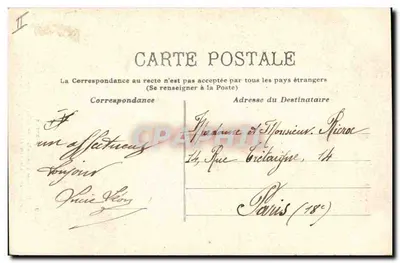 II
CARTE POSTALE
La Correspondance au recto n'est pas acceptée par tous les pays étrangers
(Se renseigner à la Poste)
Correspondance
Adresse du Destinataire
un affectueux
bonjour
Madame et Monsieur
14, Rue Trétaigne, 14
Paris (18e)